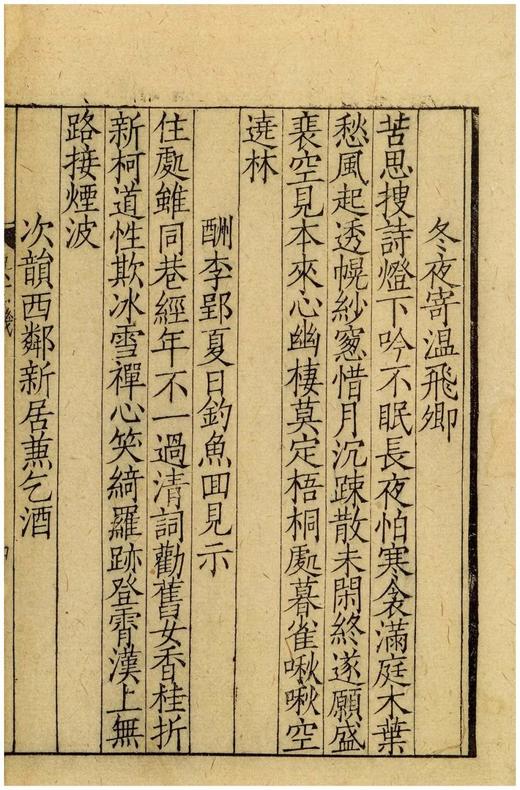 冬夜寄温飛卿
苦思搜詩燈下吟不眠長夜怕寒衾滿庭木葉
愁風起透幌紗窻惜月沉疎散未閑終遂願盛
衰空見本來心幽棲莫定梧桐處暮雀啾啾空
遶林
酬李郢夏日釣魚回見示
住處雖同巷經年不一過清詞勸舊女香桂折
新柯道性欺冰雪禪心笑綺羅跡登霄漢上無
路接煙波
次韻西鄰新居兼乞酒